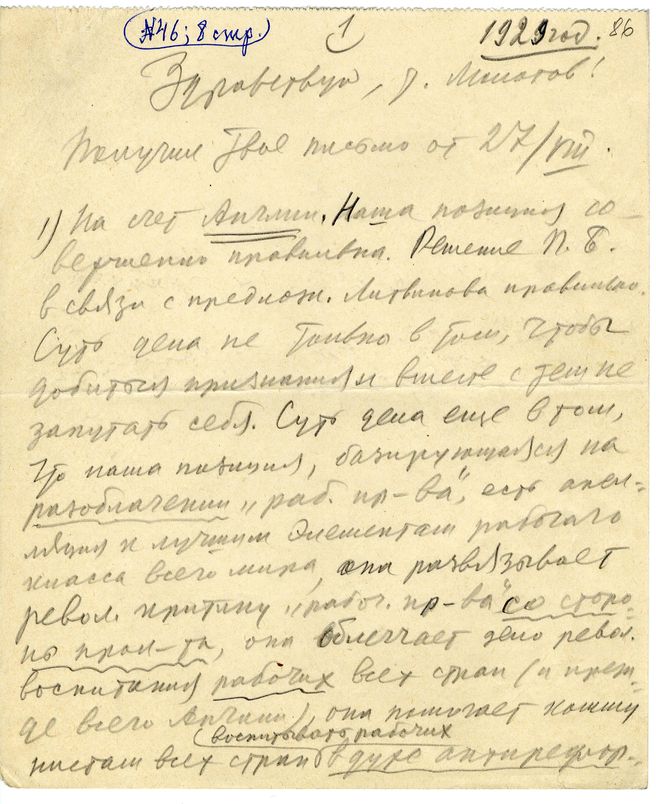 №46; 8 стр.)
1
1929 год.
86
Здравствуй, т. Молотов!
Получил твое письмо от 27/VIII.
1) На счет Англии. Наша позиция со-
вершенно правильна. Решение П.Б.
в связи с предлож. Литвинова правильно.
Суть дела не только в том, чтобы
добиться признания и вместе с тем не
запутать себя. Суть дела еще в том,
что наша позиция, базирующаяся на
разоблачении „раб. пр-ва", есть апел-
ляция к лучшим элементам рабочего
класса всего мира, она развязывает
револ. критику „рабоч. пр-ва" со сторо-
ны прол-та, она облегчает дело револ.
воспитания рабочих всех стран (и преж-
де всего Англии), она помогает комму
воспитывать рабочих
нистам всех стран в духе антирефор-